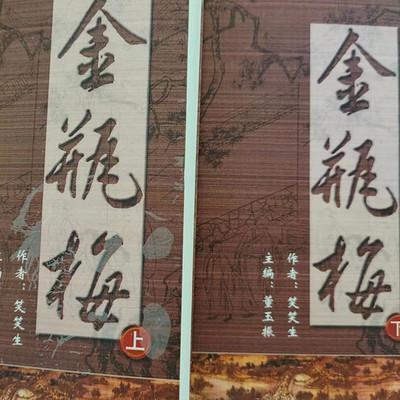 金瓶梅
作者：笑笑生
上
金瓶梅
作者：笑笑生
主编：董玉振
下